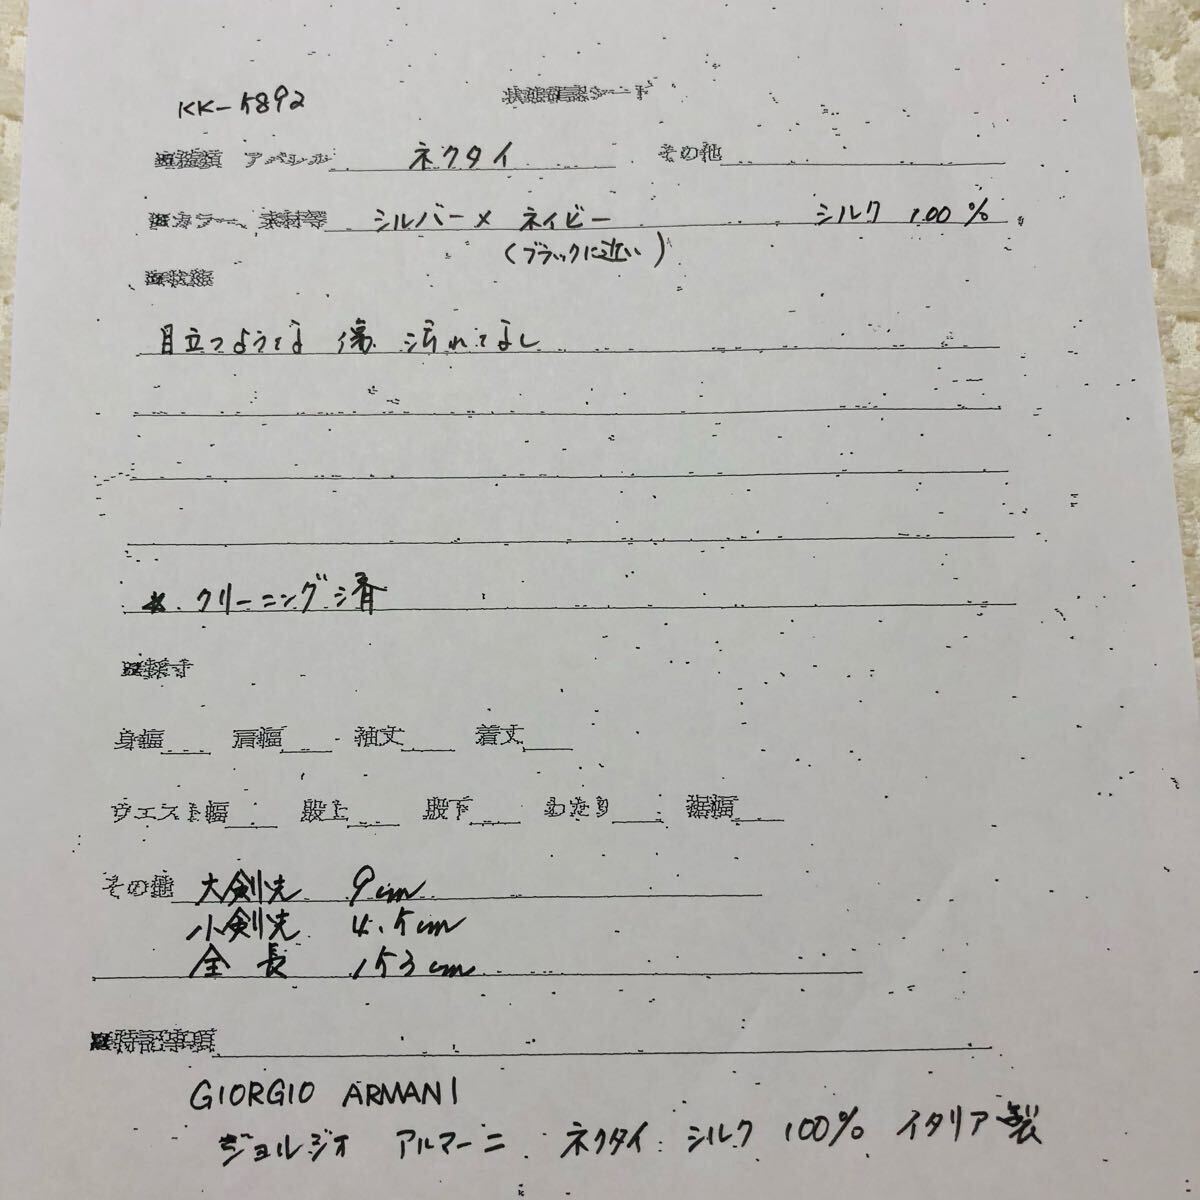 KK-5892
状態確認シート
■種類 アパレル ネクタイ その他
■カラー、素材等 シルバー× ネイビー シルク 100%
(ブラックに近い)
■状態
目立つような 傷 汚れなし
* クリーニング済
■採寸
身幅 肩幅 袖丈 着丈
ウエスト幅 股上 股下 わたり 裾幅
その他 大剣先 9cm
小剣先 4.5cm
全長 153cm
■特記事項
GIORGIO ARMANI
ジョルジオ アルマーニ ネクタイ シルク 100% イタリア製